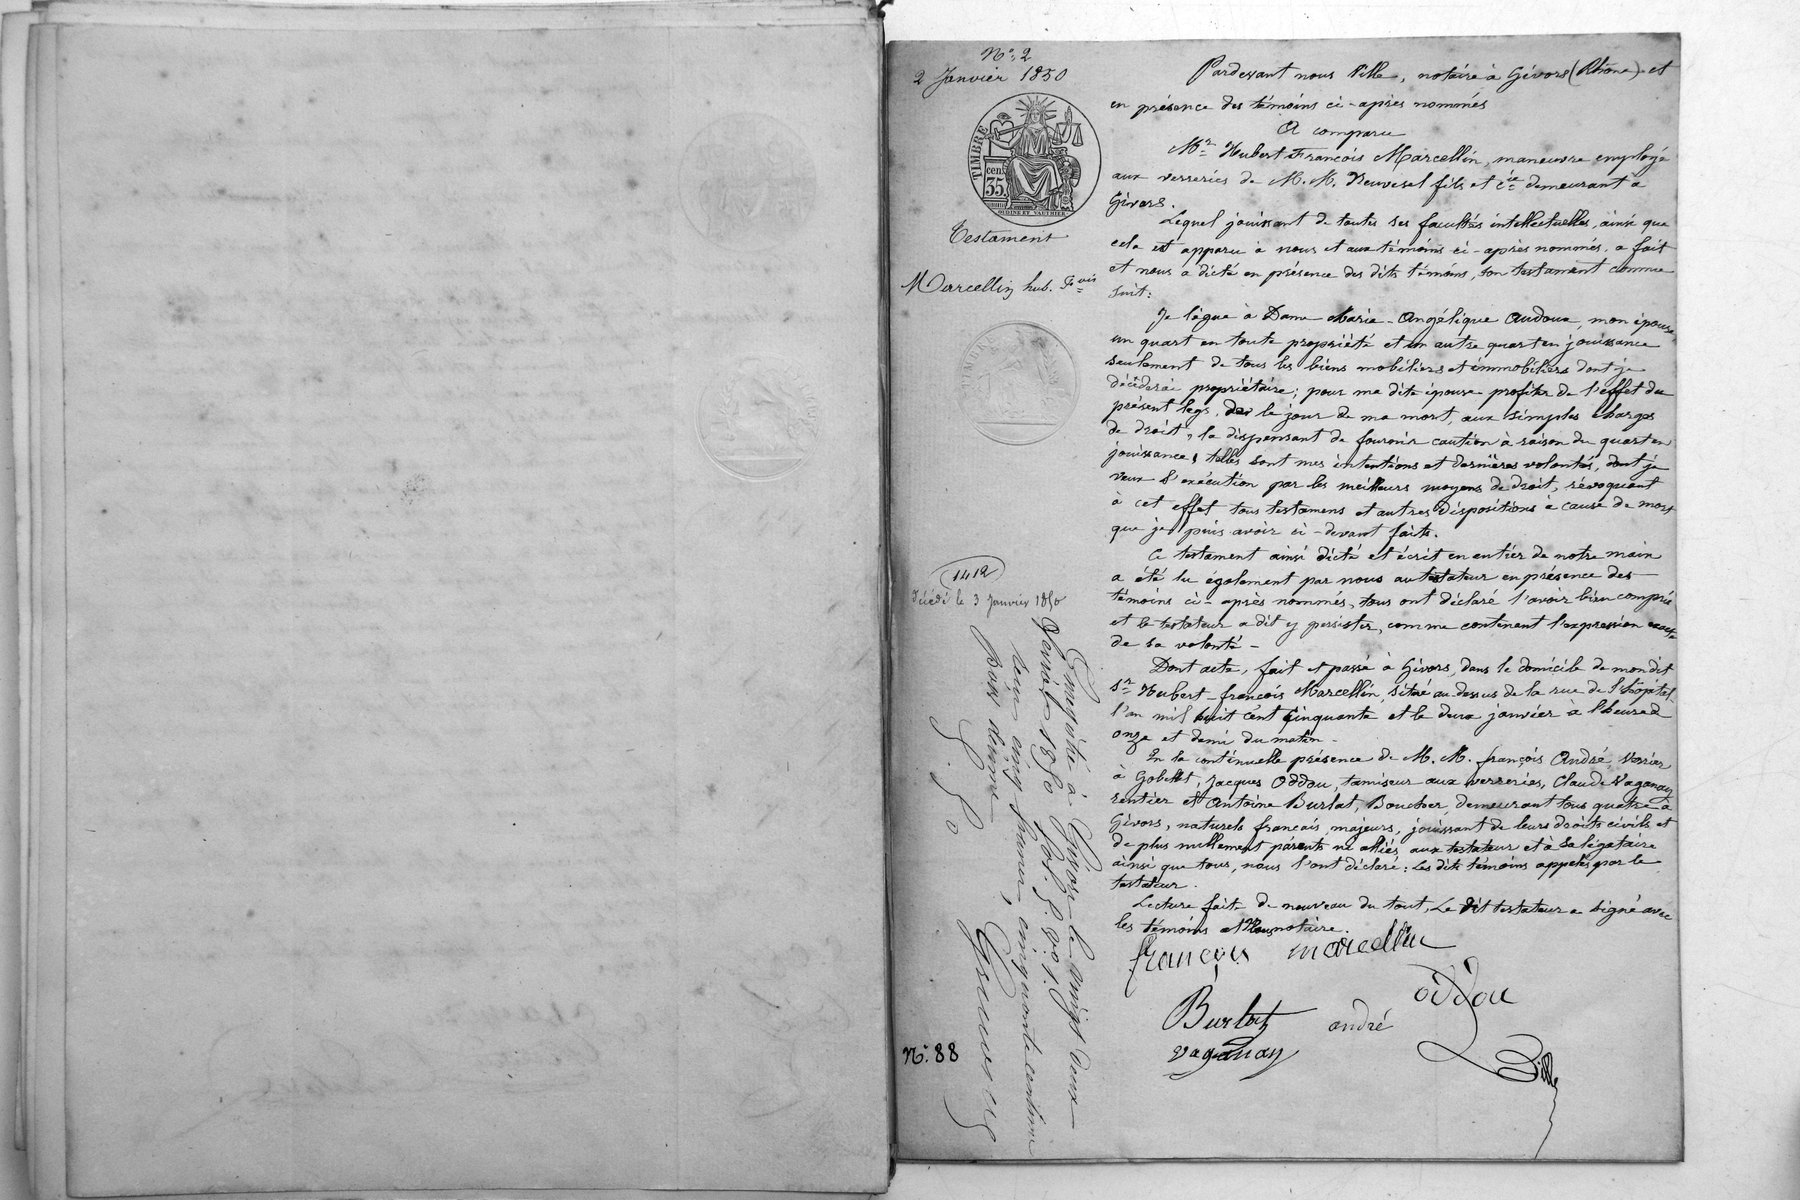 N°: 2
2 Janvier 1850
TIMBRE
35 cen.
OUDINÉ ET VAUTHIER
Testament
Marcellin hub. fçois
Pardevant nous Dille, notaire à Givors (Rhône) et
en présence des témoins ci-après nommés
A comparu
Mr Hubert François Marcellin, maneuvre employé
aux verreries de M.M. Neuvesel fils et Cie demeurant à
Givors.
Lequel jouissant de toutes ses facultés intellectuelles, ainsi que
cela est apparu à nous et aux témoins ci-après nommés, a fait
et nous a dicté en présence des dits témoins, son testament comme
suit:
Je lègue à Dame Marie-Angélique Audoux, mon épouse
un quart en toute propriété et un autre quart en jouissance
seulement de tous les biens mobiliers et immobiliers dont je
décèderai propriétaire; pour ma dite épouse profiter de l'effet du
présent legs, dès le jour de ma mort, aux simples charges
de droit, la dispensant de fournir caution à raison du quart en
jouissance; telles sont mes intentions et dernières volontés, dont je
veux l'exécution par les meilleurs moyens de droit, révoquant
à cet effet tous testamens et autres dispositions à cause de mort
que je puis avoir ci-devant faits.
Ce testament ainsi dicté et écrit en entier de notre main
a été lu également par nous au testateur en présence des
témoins ci-après nommés, tous ont déclaré l'avoir bien compris
et le testateur a dit y persister, comme contenant l'expression exacte
de sa volonté -
Dont acte, fait et passé à Givors, dans le domicile de mondit
Sr Hubert-françois Marcellin, situé au dessus de la rue de l'hôpital
l'an mil huit cent cinquante et le deux janvier à l'heure d
onze et demi du matin -
En la continuelle présence de M.M. françois André, Verrier
à Gobelet, Jacques Oddou, tamiseur aux verreries, Claude Vaganay
rentier et Antoine Burlat, Boucher, demeurant tous quatre à
Givors, naturels français, majeurs, jouissant de leurs droits civils et
de plus nullement parents ni alliés aux testateur et à sa légataire
ainsi que tous, nous l'ont déclaré: les dits témoins appelés par le
testateur.
Lecture faite de nouveau du tout, Le dit testateur a signé avec
les témoins et Nous notaire.
françois marcellin
oddou
Burlat andré
Vaganay
Dille
1412
Décédé le 3 Janvier 1850
Enregistré à Givors le vingt deux
Janvier 1850
Reçu cinq francs, cinquante centimes
pour dixme
N°: 88